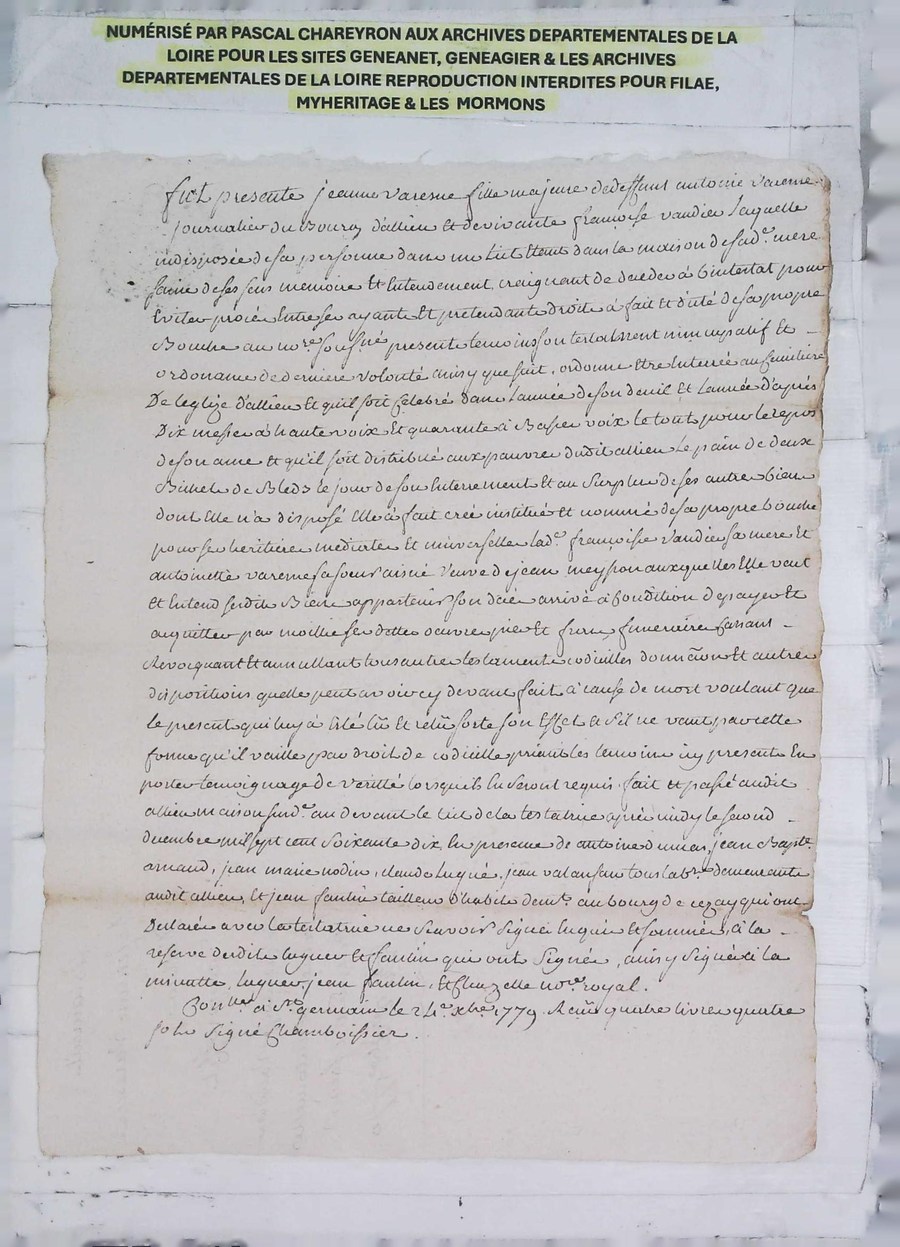 NUMÉRISÉ PAR PASCAL CHAREYRON AUX ARCHIVES DEPARTEMENTALES DE LA
LOIRE POUR LES SITES GENEANET, GENEAGIER & LES ARCHIVES
DEPARTEMENTALES DE LA LOIRE REPRODUCTION INTERDITES POUR FILAE,
MYHERITAGE & LES MORMONS
fut presente jeanne varenne fille majeure de deffunt antoine varenne
journalier du Bourg d'allieu Et de vivante françoise vaudier Laquelle
indisposée de sa personne dans un Lit Etant dans la maison de sad.e mere
saine de ses sens memoire Et Entendement, craignant de deceder ab intestat pour
Eviter procée Entre se ayants Et pretendants droits à fait Et dicté de sa propre
Bouche au no.re sousigné presents temoins son testament nuncupatif Et
ordonance de derniere volonté ainsy que suit, ordonne Etre Enterrée au cimitiere
De leglize d'allieu Et qu'il soit Celebré dans Lannée de son deuil Et Lannée d'après
Dix messes à haute voix Et quarante à Basse voix le tout pour le repos
de son ame Et qu'il soit distribué aux pauvres dudit allieu Le pain de deux
Bichets de Bleds le jour de son Enterrement Et au Surplus de ses autres biens
dont Elle n'a disposé Elle à fait creé institué Et nommé de sa propre bouche
pour ses heritieres Et universelle lad.e françoise vaudier sa mere Et
antoinette varenne sa soeur Veuve de jean meyson auxquelles Elle vaut
Et Entend sesdits Biens appartenir son décé arrivé à Condition de payer Et
aquitter par moitié ses dettes oeuvres pies Et frais funeraire Cassant
Revocquant Et annullant tous autres testaments codicilles donnaôn Et autres
dispositions quelle peut avoir cy devant fait à cause de mort voulant que
le present qui luy à Eté lû Et relû sorte son Effet Et s'il ne vaut par cette
forme qu'il vaille par droit de codicille priant les temoins icy presents En
porter temoignage de verité lorsqu'ils En seront requis, fait Et passé audit
allieu maison susd.e au devant le lit de la testatrice après midy le second
decembre mil sept cent soixante dix En presence de antoine dumas, jean Bapt.e
arnaud, jean marie nodin, claude luquet, jean valansan tous lab.rs demeurants
audit allieu, Et jean fantin tailleur d'habits dem.t au bourg de cezay qui ont
Declaré avec la testatrice ne Scavoir Signer Enquis Et sommés, à la
reserve desdits luquet Et fantin qui ont Signés, ainsy Signé à la
minutte, luquet, jean fantin, Et Chazelle no.re royal.
Con.llé à S.t germain le 24.e xbre 1779. Recû quatre livres quatre
sols Signé Chamboissier.